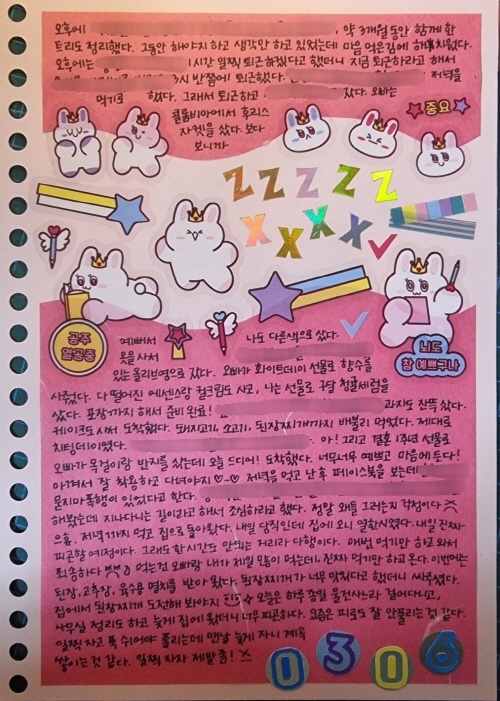 오후에
, 약 3개월 동안 함께 한
트리도 정리했다. 그동안 해야지 하고 생각만 하고 있었는데 마음 먹은김에 해치웠다.
오후에는 1시간 일찍 퇴근해줬다고 했더니 지금 퇴근하라고 해서
3시 반쯤에 퇴근했다. 저녁을
먹기로 했다. 그래서 퇴근하고 갔다. 오빠는
콜롬비아에서 후리스
자켓을 샀다. 보다
보니까
중요
ZZZZZ
XXXX
공주
열공중
예뻐서
옷을 사서
나도 다른색으로 샀다.
너도
참 예쁘구나
있는 올리브영으로 갔다. 오빠가 화이트데이 선물로 향수를
사주셨다. 다 떨어진 에센스랑 컬크림도 사고, 나는 선물로 구달 청귤세럼을
샀다. 포장까지 해서 준비 완료! 과자도 잔뜩 샀다.
케이크도 사서 도착했다. 돼지고기, 소고기, 된장찌개까지 배불리 먹었다. 제대로
치팅데이였다. 아! 그리고 결혼 1주년 선물로
오빠가 목걸이랑 반지를 샀는데 오늘 드디어! 도착했다. 너무너무 예쁘고 마음에 든다!
아껴서 잘 착용하고 다녀야지 ♡-♡ 저녁을 먹고 난 후 페이스북을 보는데
묻지마폭행이 있었다고 한다.
해봤는데 지나다니는 길이라고 해서 조심하라고 했다. 정말 왜들 그러는지 걱정이다
으휴. 저녁 까지 먹고 집으로 돌아왔다. 내일 당직인데 집에 오니 열한시였다. 내일 진짜
피곤할 예정이다. 그래도 한시간도 안되는 거리라 다행이다. 매번 먹기만 하고 와서
죄송하다 먹는건 오빠랑 내가 제일 많이 먹는데, 진짜 먹기만 하고 온다. 이번에는
된장, 고추장, 육수용 멸치를 받아 왔다. 된장찌개가 너무 맛있다고 했더니 싸주셨다.
집에서 된장찌개 도전해 봐야지 오늘은 하루 종일 물건사느라 걸어다니고,
사무실 정리도 하고 늦게 집에 왔더니 너무 피곤하다. 요즘은 피로도 잘 안풀리는 것 같다.
일찍 자고 푹 쉬어야 풀리는데 맨날 늦게 자니 계속
쌓이는 것 같다. 일찍 자자 제발 좀!
0306